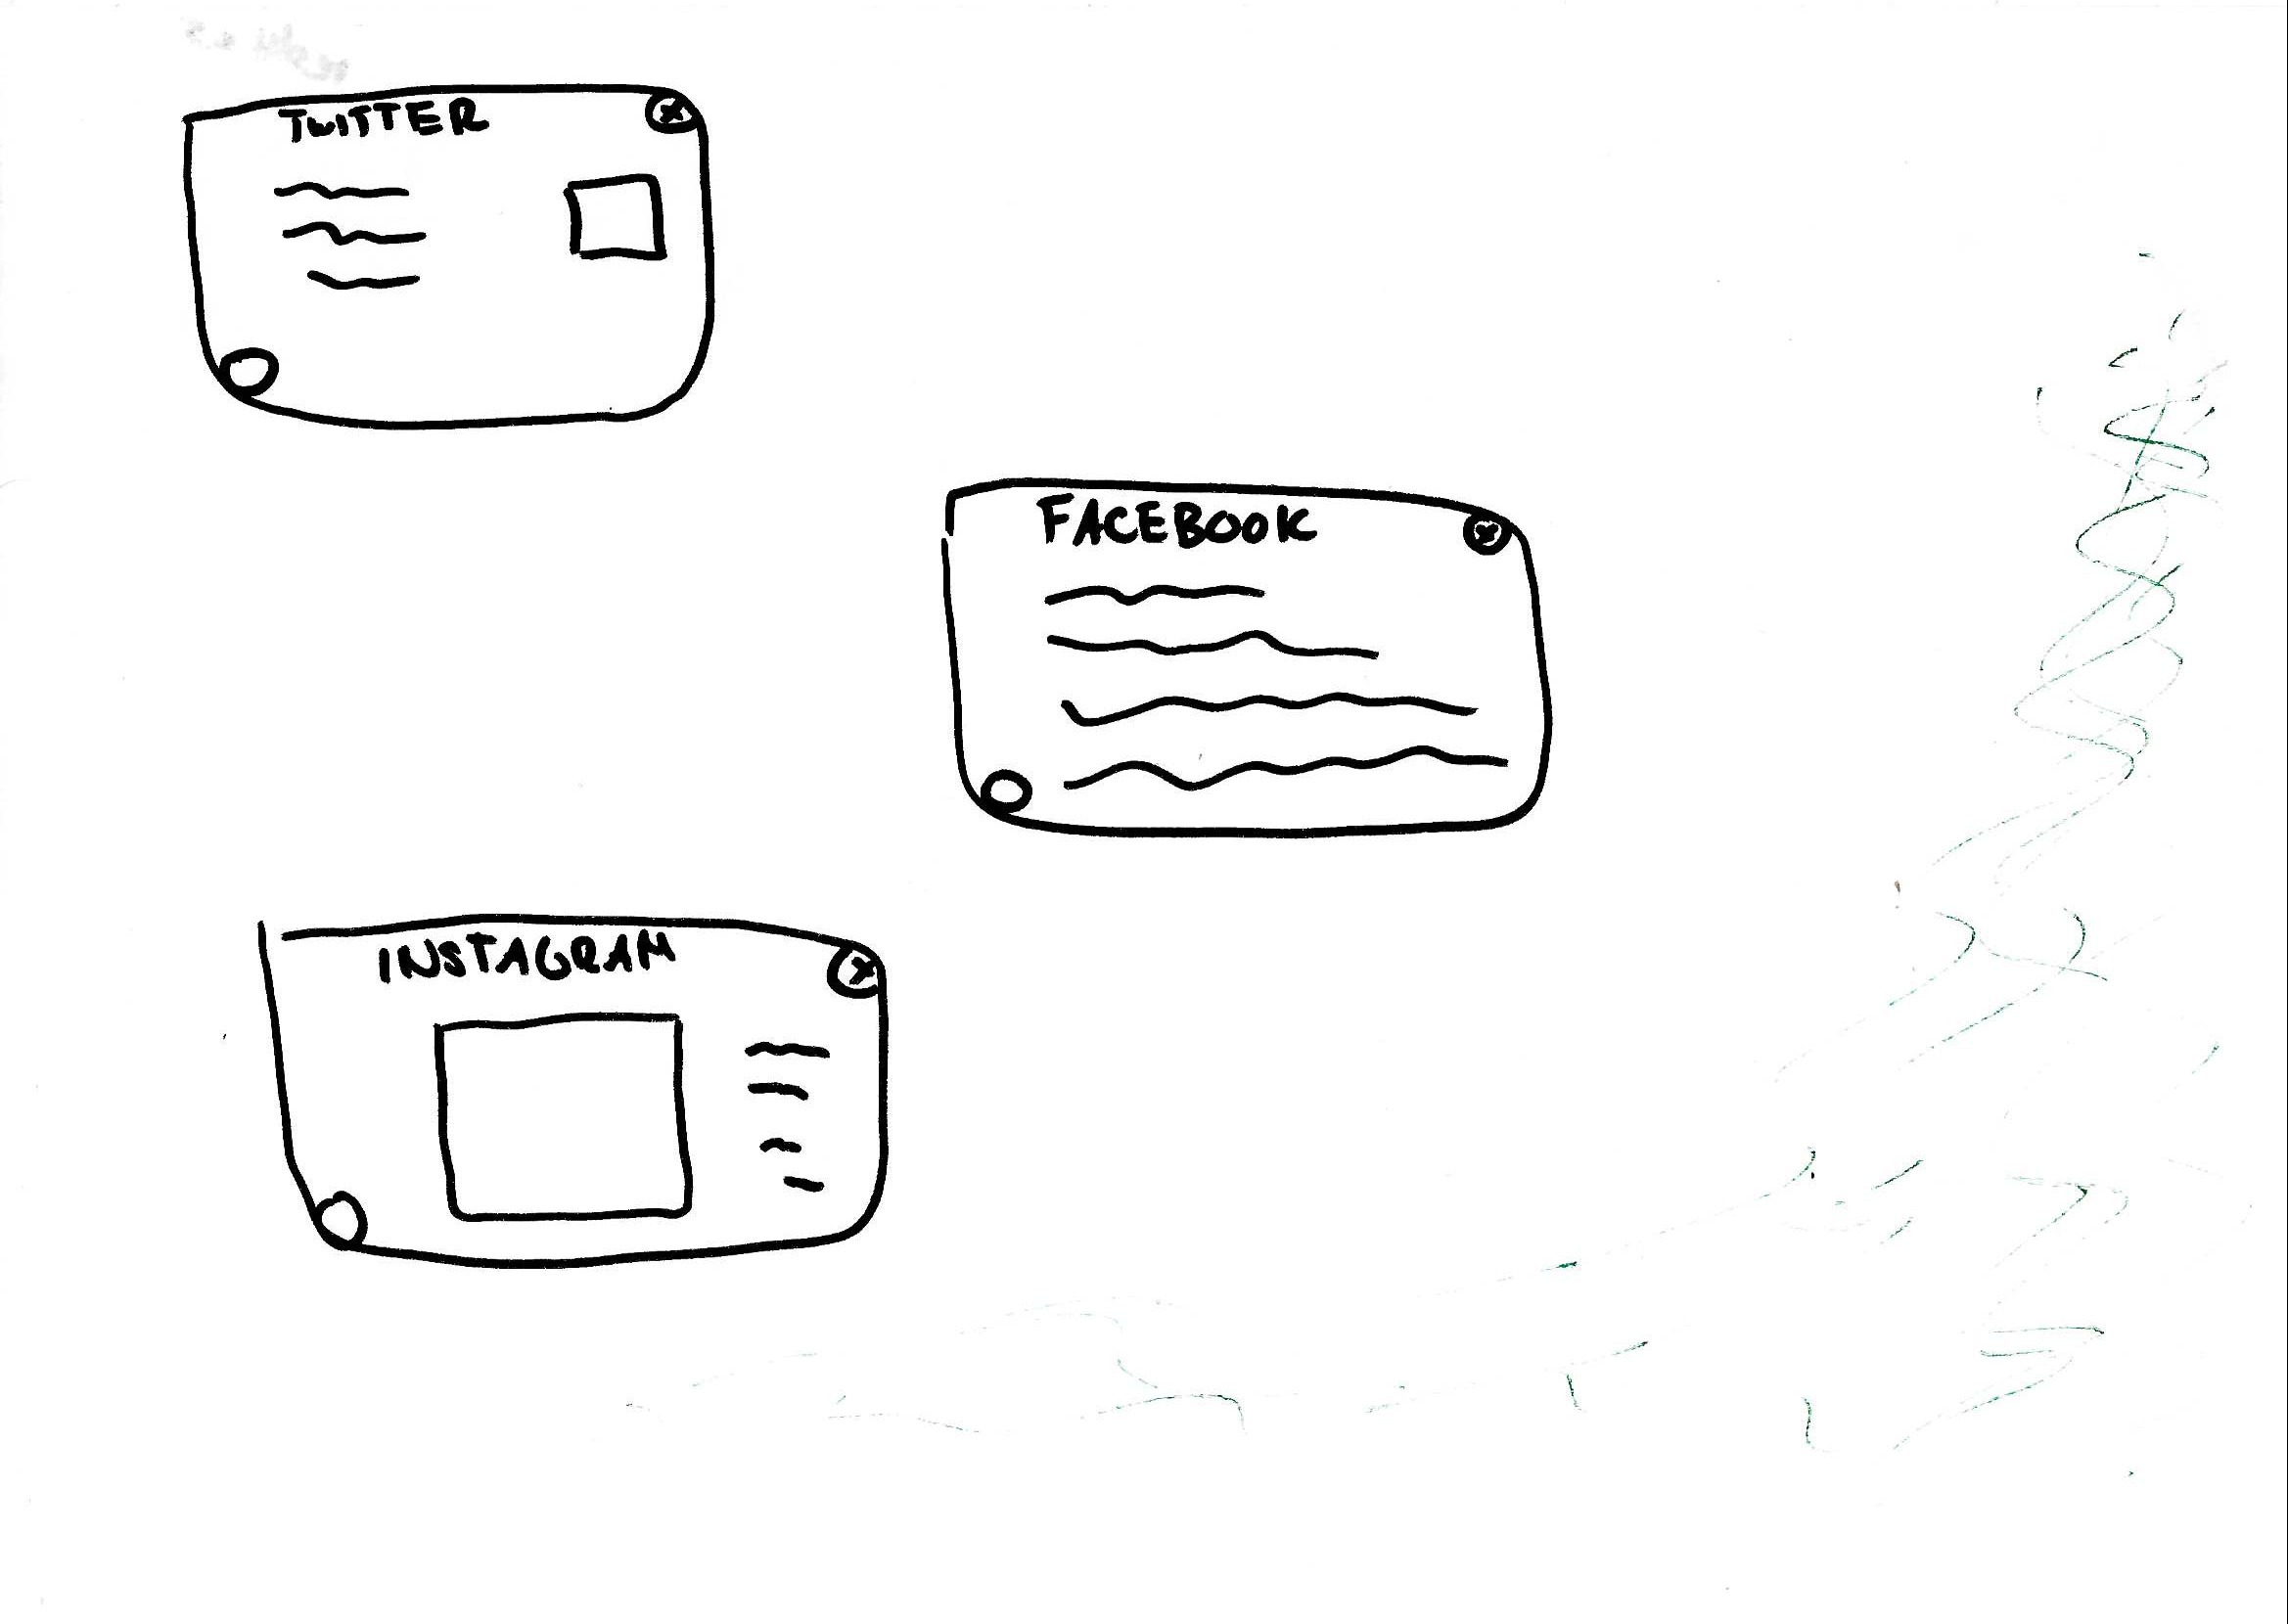 TWITTER
X
FACEBOOK
X
INSTAGRAM
X